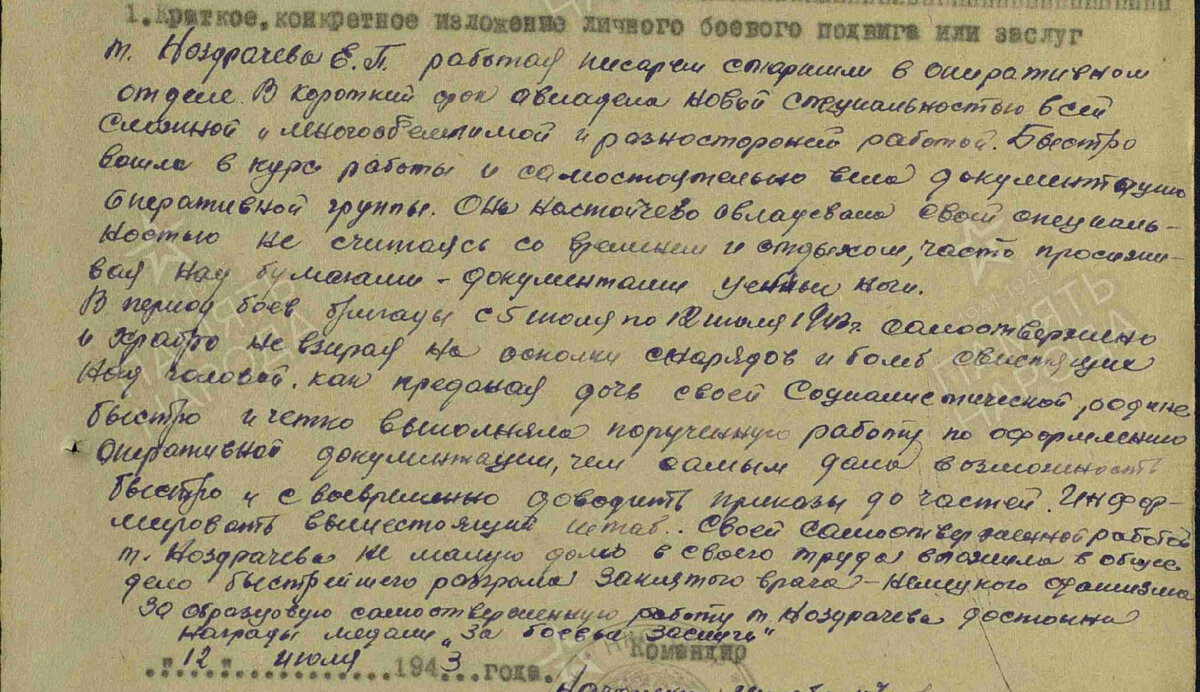 1. Краткое, конкретное изложение личного боевого подвига или заслуг
т. Ноздрачева Е.П. работая писарем старшим в оперативном
отделе. В короткий срок авладела новой специальностью всей
сложной и многообемлимой и разносторокей работой. Быстро
вошла в курс работы и самостоятельно вела документацию
оперативной группы. Она настойчево овладевала своей специаль-
ностью не считаясь со временем и отдыхом, часто просижи-
вая над бумагами - документами целыи ночи.
В период боев бригады с 5 июля по 12 июля 1943г. самоотвержено
и храбро не взирая на осколки снарядов и бомб свистящие
над головой, как преданая дочь своей Социалистической родине
быстро и четко выполняла порученную работу по оформлению
оперативной документации, чем самым дала возможность
быстро и своевременно доводить приказы до частей. Инфор-
мировать вышестоящий штаб. Своей самоотверженной работой
т. Ноздрачева не малую долю в своего труда вложила в общее
дело быстрейшего разгрома заклятого врага - немецкого фашизма
За образцовую самоотверженную работу т. Ноздрачева достойна
награды медали "За боевые заслуги"
"12" июля 1943 года.
Командир
ПАМЯТЬ НАРОДА
ПАМЯТЬ НАРОДА